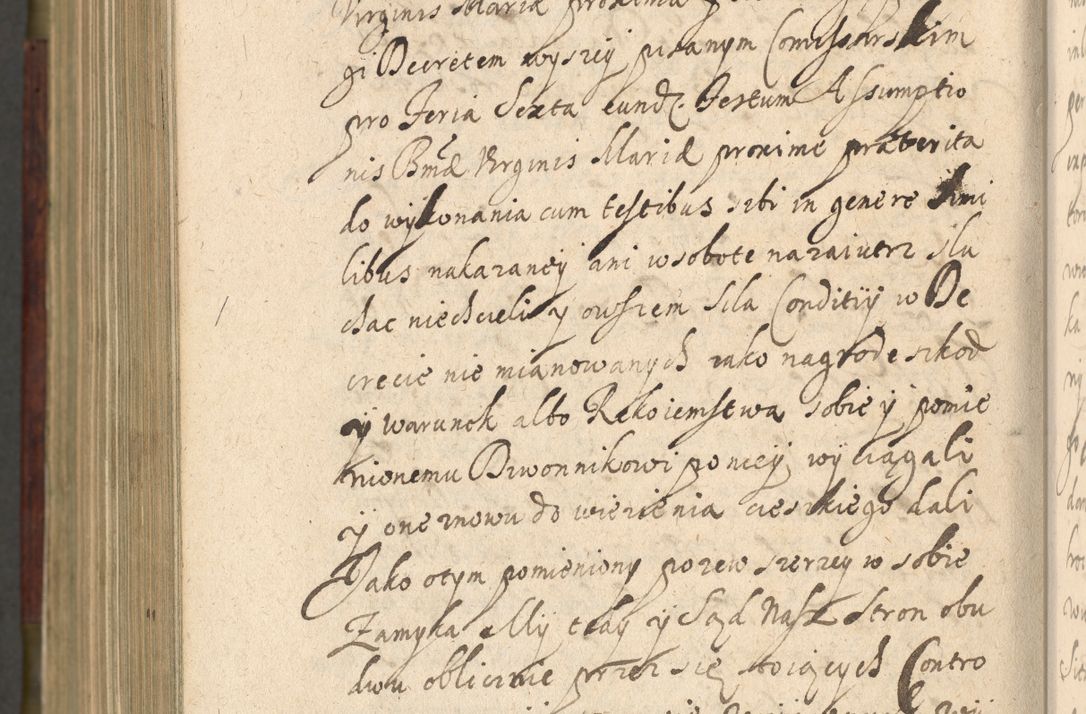 Virginis Mariæ proxima
gi Decretem wyszey pisanym Comissarskim
pro Feria Sexta eundẽ Festum Assumptio
nis Bmæ Virginis Mariæ proxime præterita
do wykonania cum testibus sibi in genere simi
libus nakazaney ani wsobote nazaiutrz slu
chac niechcieli y owszem sila Conditiÿ w De
crecie nie mianowanych iako nagrode szkod
y warunek albo Rekoiemstwa sobie y pomie
nionemu Dzwonnikowi po niey wyciągali
y one znowu do wiezienia cieszkiego dali
Jako otym pomieniony pozew szerzey w sobie
Zamyka My tedy y Sąd Nasz stron obu
dwu oblicznie przez się stoiących Contro